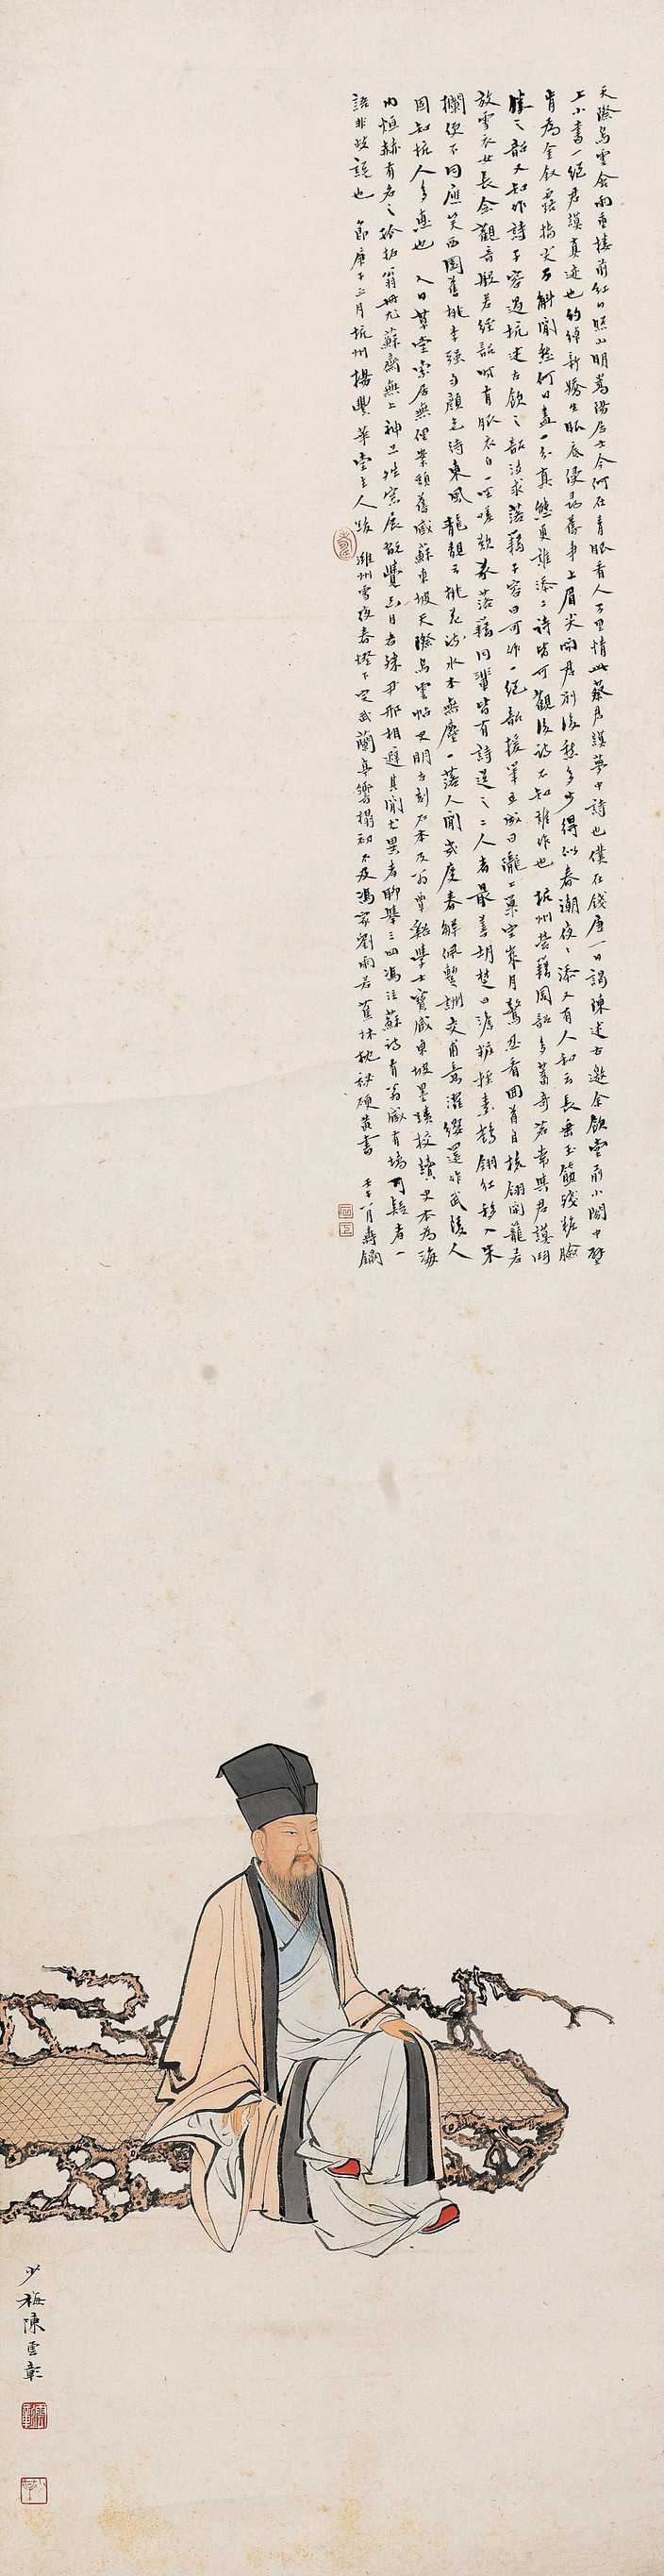 天際烏雲含雨重樓前紅日照山明嵩陽居士今何在青眼看人万里情此蔡君謨夢中詩也僕在錢唐一日謁陳述古邀余飲堂前小閣中壁
上小書一絕君謨真迹也約綽新嬌生眼底侵尋舊事上眉尖問君別後愁多少得似春潮夜夜添又有人和云長垂玉筯殘粧臉
肯為金釵露指尖万斛閒愁何日盡一分真態更難添二詩皆可觀後詩不知誰作也 杭州營籍周韶多蓄奇茗常與君謨鬭
勝之韶又知作詩子容過杭述古飲之韶泣求落籍子容曰可作一絕韶援筆立成曰隴上巢空歲月驚忍看回首自梳翎開籠若
放雪衣女長念觀音般若經韶時有服衣白一坐嗟歎遂落籍同輩皆有詩送之二人者最善胡楚曰淡粧輕素鶴翎紅移入朱
欄便不同應笑西園舊桃李強勻顏色待東風龍靚云桃花流水本無塵一落人間幾度春解佩暫酬交甫意濯纓還作武陵人
固知杭人多惠也 人日草堂索居無俚舊藏蘇東坡天際烏雲帖明刻石本及翁覃谿學士寶藏東坡墨蹟校讀本為海
內烜赫有名之翁蘇齋無上神品展觀相避其間尤異者聊舉三四馮注蘇詩有可疑者一
語非故謊也 節庚子三月杭州楊豐華堂主人跋 濰州雪夜春燈下蘭亭響搨初不及馮家劉雨若蕉林秘硬黃書 壬午一月壽鑈
少梅陳雲彰